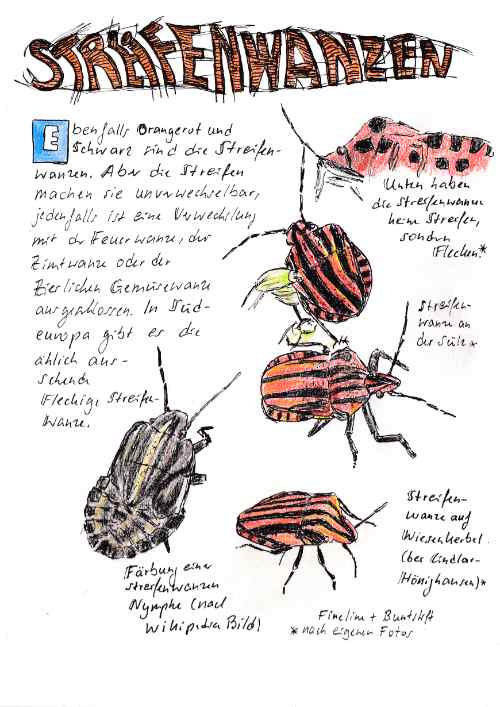 STREIFENWANZEN
Ebenfalls Orangerot und
Schwarz sind die Streifen-
wanzen. Aber die Streifen
machen sie unverwechselbar,
jedenfalls ist eine Verwechslung
mit der Feuerwanze, der
Zimtwanze oder der
Zierlichen Gemüsewanze
ausgeschlossen. In Süd-
europa gibt es die
ählich aus-
sehende
Fleckige Streifen-
wanze.
Unten haben
die Streifenwanzen
keine Streifen,
sondern
Flecken.*
Streifen-
wanze an
der Sülz*
Streifen-
wanze auf
Wiesenkerbel
(bei Lindlar-
Hönighausen)*
Färbung einer
Streifenwanzen
Nymphe (nach
Wikipedia Bild)
Fineliner + Buntstift
*nach eigenen Fotos